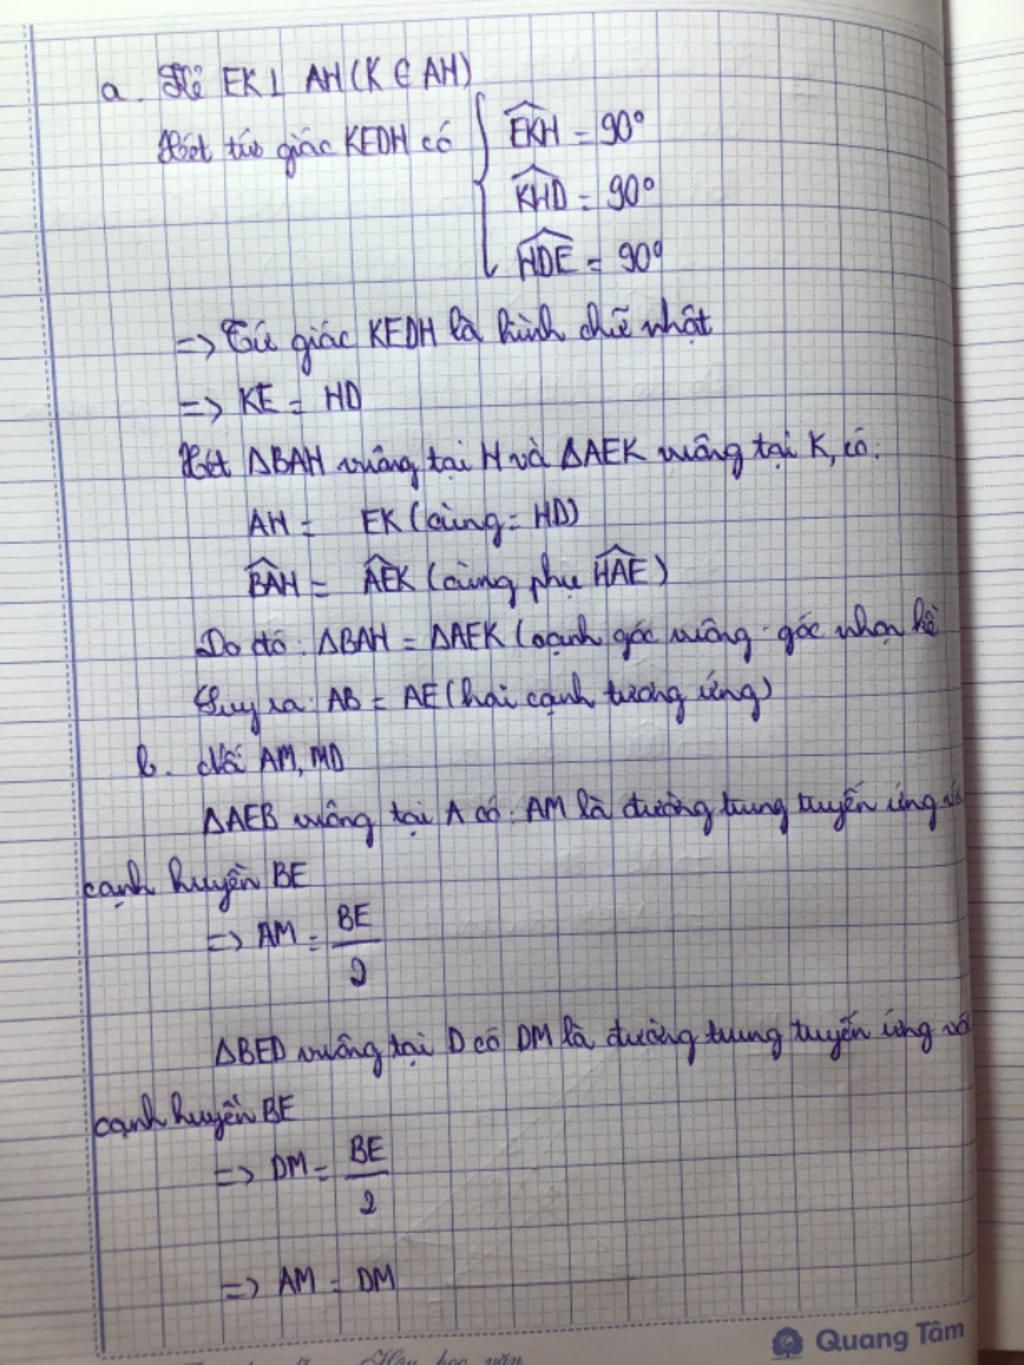 a. Kẻ EK⊥ AH (K ∈ AH)
Xét tứ giác KEDH có { EKH = 90°
KHD = 90°
HDE = 90°
=> Tứ giác KEDH là hình chữ nhật
=> KE = HD
Xét ΔBAH vuông tại H và ΔAEK vuông tại K, có:
AH = EK (cùng = HD)
BAH = AEK (cùng phụ HAE)
Do đó: ΔBAH = ΔAEK (cạnh góc vuông - góc nhọn kề
Suy ra: AB = AE (hai cạnh tương ứng)
b. Nối AM, MD
ΔAEB vuông tại A có: AM là đường trung tuyến ứng với
cạnh huyền BE
=> AM = BE/2
ΔBED vuông tại D có DM là đường trung tuyến ứng với
cạnh huyền BE
=> DM = BE/2
=> AM = DM
Quang Tâm